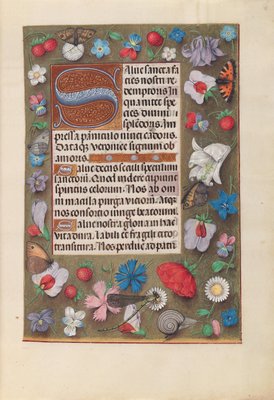 Salue sancta fa
cies nostri re
demptoris In
qua nitet spe
cies diuini
splēdoris. Im
pressa panniculo niuei cādoris.
Dataq; veronice signum ob
amoris. Salue decus seculi speculum
sanctorū. Quod videre cupiunt
spiritus celorum. Nos ab om
ni macula purga viciorū. Atq;
nos consortio iunge beatorum.
Salue nostra gloria in hac
vita dura. Labili et fragili cito
transitura. Nos perduc ad patri